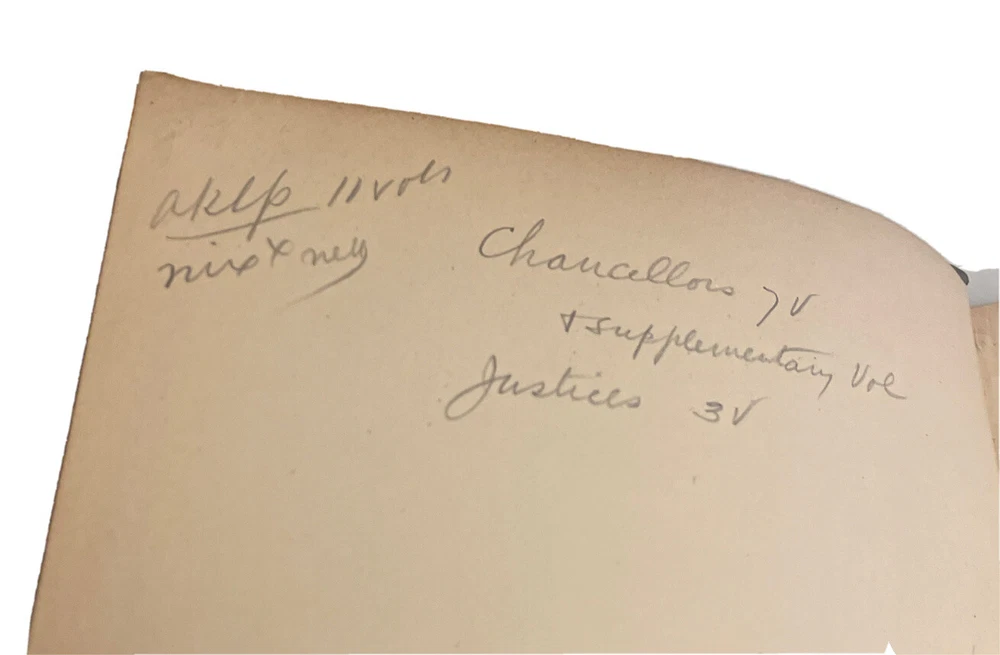 aklp 11 vols
Chancellors 7 V
+ Supplementary Vol
Justices 3 V